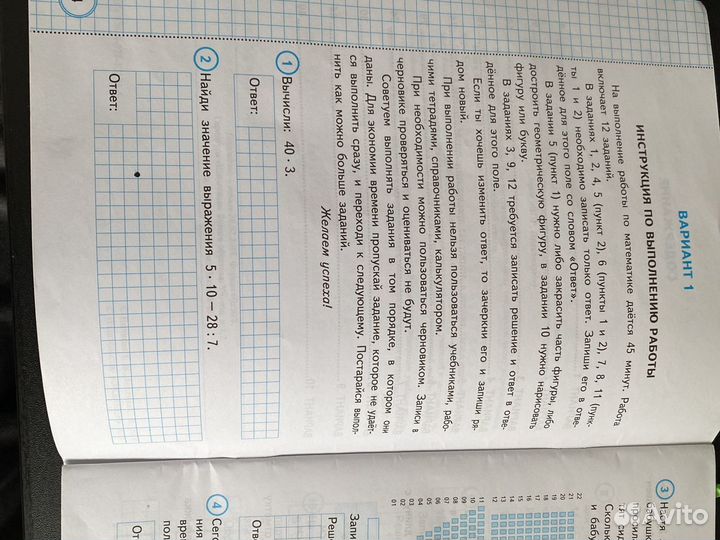 ВАРИАНТ 1
ИНСТРУКЦИЯ ПО ВЫПОЛНЕНИЮ РАБОТЫ
На выполнение работы по математике даётся 45 минут. Работа
включает 12 заданий.
В заданиях 1, 2, 4, 5 (пункт 2), 6 (пункты 1 и 2), 7, 8, 11 (пунк-
ты 1 и 2) необходимо записать только ответ. Запиши его в отве-
дённое для этого поле со словом «Ответ».
В задании 5 (пункт 1) нужно либо закрасить часть фигуры, либо
достроить геометрическую фигуру, в задании 10 нужно нарисовать
фигуру или букву.
В заданиях 3, 9, 12 требуется записать решение и ответ в отве-
дённое для этого поле.
Если ты хочешь изменить ответ, то зачеркни его и запиши ря-
дом новый.
При выполнении работы нельзя пользоваться учебниками, рабо-
чими тетрадями, справочниками, калькулятором.
При необходимости можно пользоваться черновиком. Записи в
черновике проверяться и оцениваться не будут.
Советуем выполнять задания в том порядке, в котором они
даны. Для экономии времени пропускай задание, которое не удаёт-
ся выполнить сразу, и переходи к следующему. Постарайся выпол-
нить как можно больше заданий.
Желаем успеха!
1 Вычисли: 40 · 3.
Ответ:
2 Найди значение выражения 5 · 10 – 28 : 7.
Ответ:
3 Настя
Сколь
и бабу
22
21
20
19
18
17
16
15
14
13
12
11
10
09
08
07
06
05
04
03
02
01
Запи
Реше
Отв
4 Сего
ния
вре
пол
От
Avito